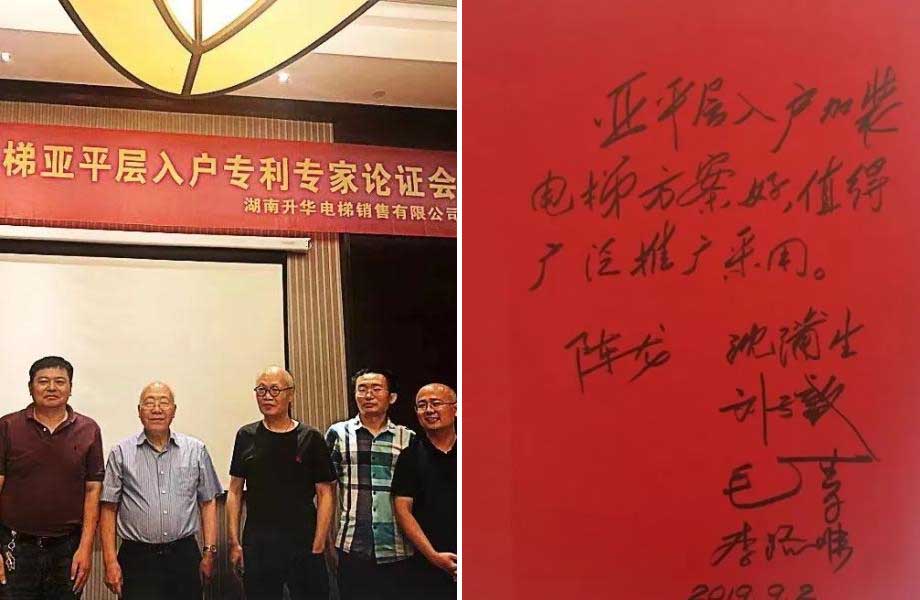 梯亚平层入户专利专家论证会
湖南升华电梯销售有限公司
亚平层入户加装
电梯方案好,值得
广泛推广采用。
陈龙 沈蒲生
毛
2019.9.2